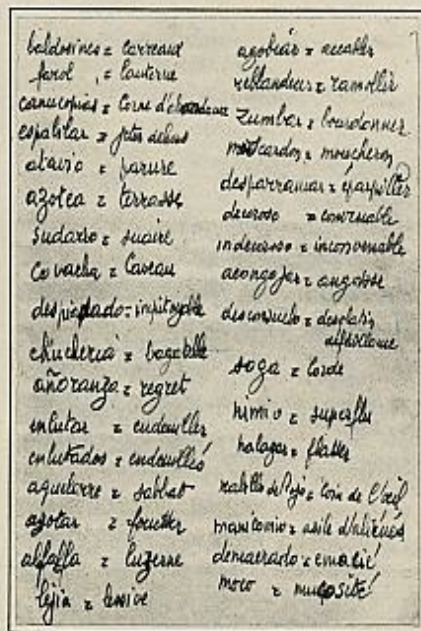 baldosines = carreaux
farol = lanterne
canucopias = Corne d'abondance
espabilar = jeter dehors
atavio = parure
azotea = terrasse
sudario = suaire
covacha = Caveau
despiadado = impitoyable
chucheria = bagatelle
añoranza = regret
enlutar = endeuiller
enlutados = endeuillés
aquelarre = sabbat
azotar = fouetter
alfalfa = luzerne
lejia = lessive
agobiar = accabler
reblandecer = ramollir
zumbar = bourdonner
moscardon = moucheron
desparramar = éparpiller
decoroso = convenable
indecoroso = inconvenable
acongojar = angoisse
desconsuelo = desolation
soga = Corde
nimio = superflu
halagar = flatter
rabillo de l'ojo = Coin de l'oeil
manicomio = asile d'aliénés
demacrado = emacié
moco = mucosité